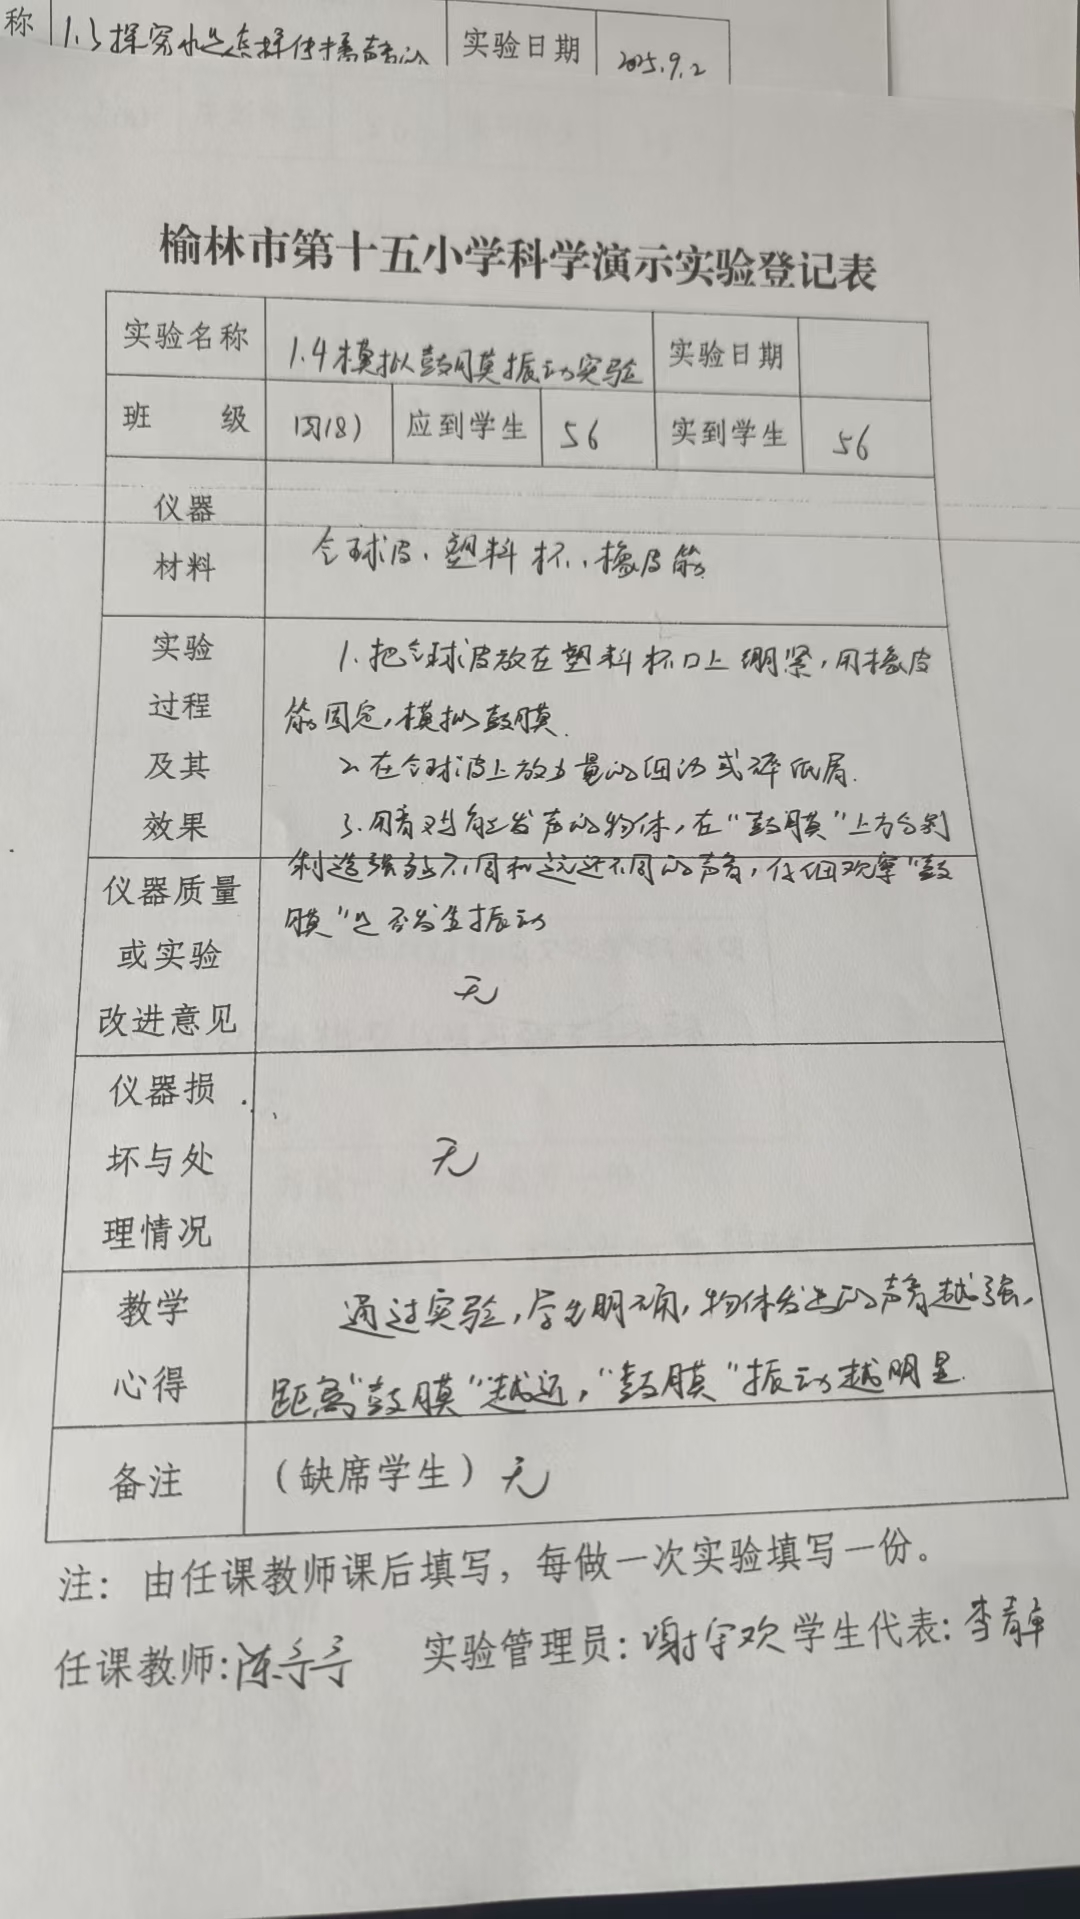 称 1.3探究水是怎样传播声音的 实验日期 2025.9.2
榆林市第十五小学科学演示实验登记表
实验名称 1.4模拟鼓膜振动实验 实验日期
班 级 四(8) 应到学生 56 实到学生 56
仪器
材料
气球皮、塑料杯、橡皮筋
实验
过程
及其
效果
1.把气球皮放在塑料杯口上绷紧,用橡皮
筋固定,模拟鼓膜.
2.在气球皮上放少量的细沙或碎纸屑.
3.用音叉等能发声的物体,在“鼓膜”上方分别
制造强弱不同和远近不同的声音,仔细观察“鼓
膜”是否发生振动
仪器质量
或实验
改进意见
无
仪器损
坏与处
理情况
无
教学
心得
通过实验,学生明确,物体发出的声音越强,
距离“鼓膜”越近,“鼓膜”振动越明显.
备注 (缺席学生) 无
注:由任课教师课后填写,每做一次实验填写一份。
任课教师: 实验管理员:谢宇欢 学生代表:李